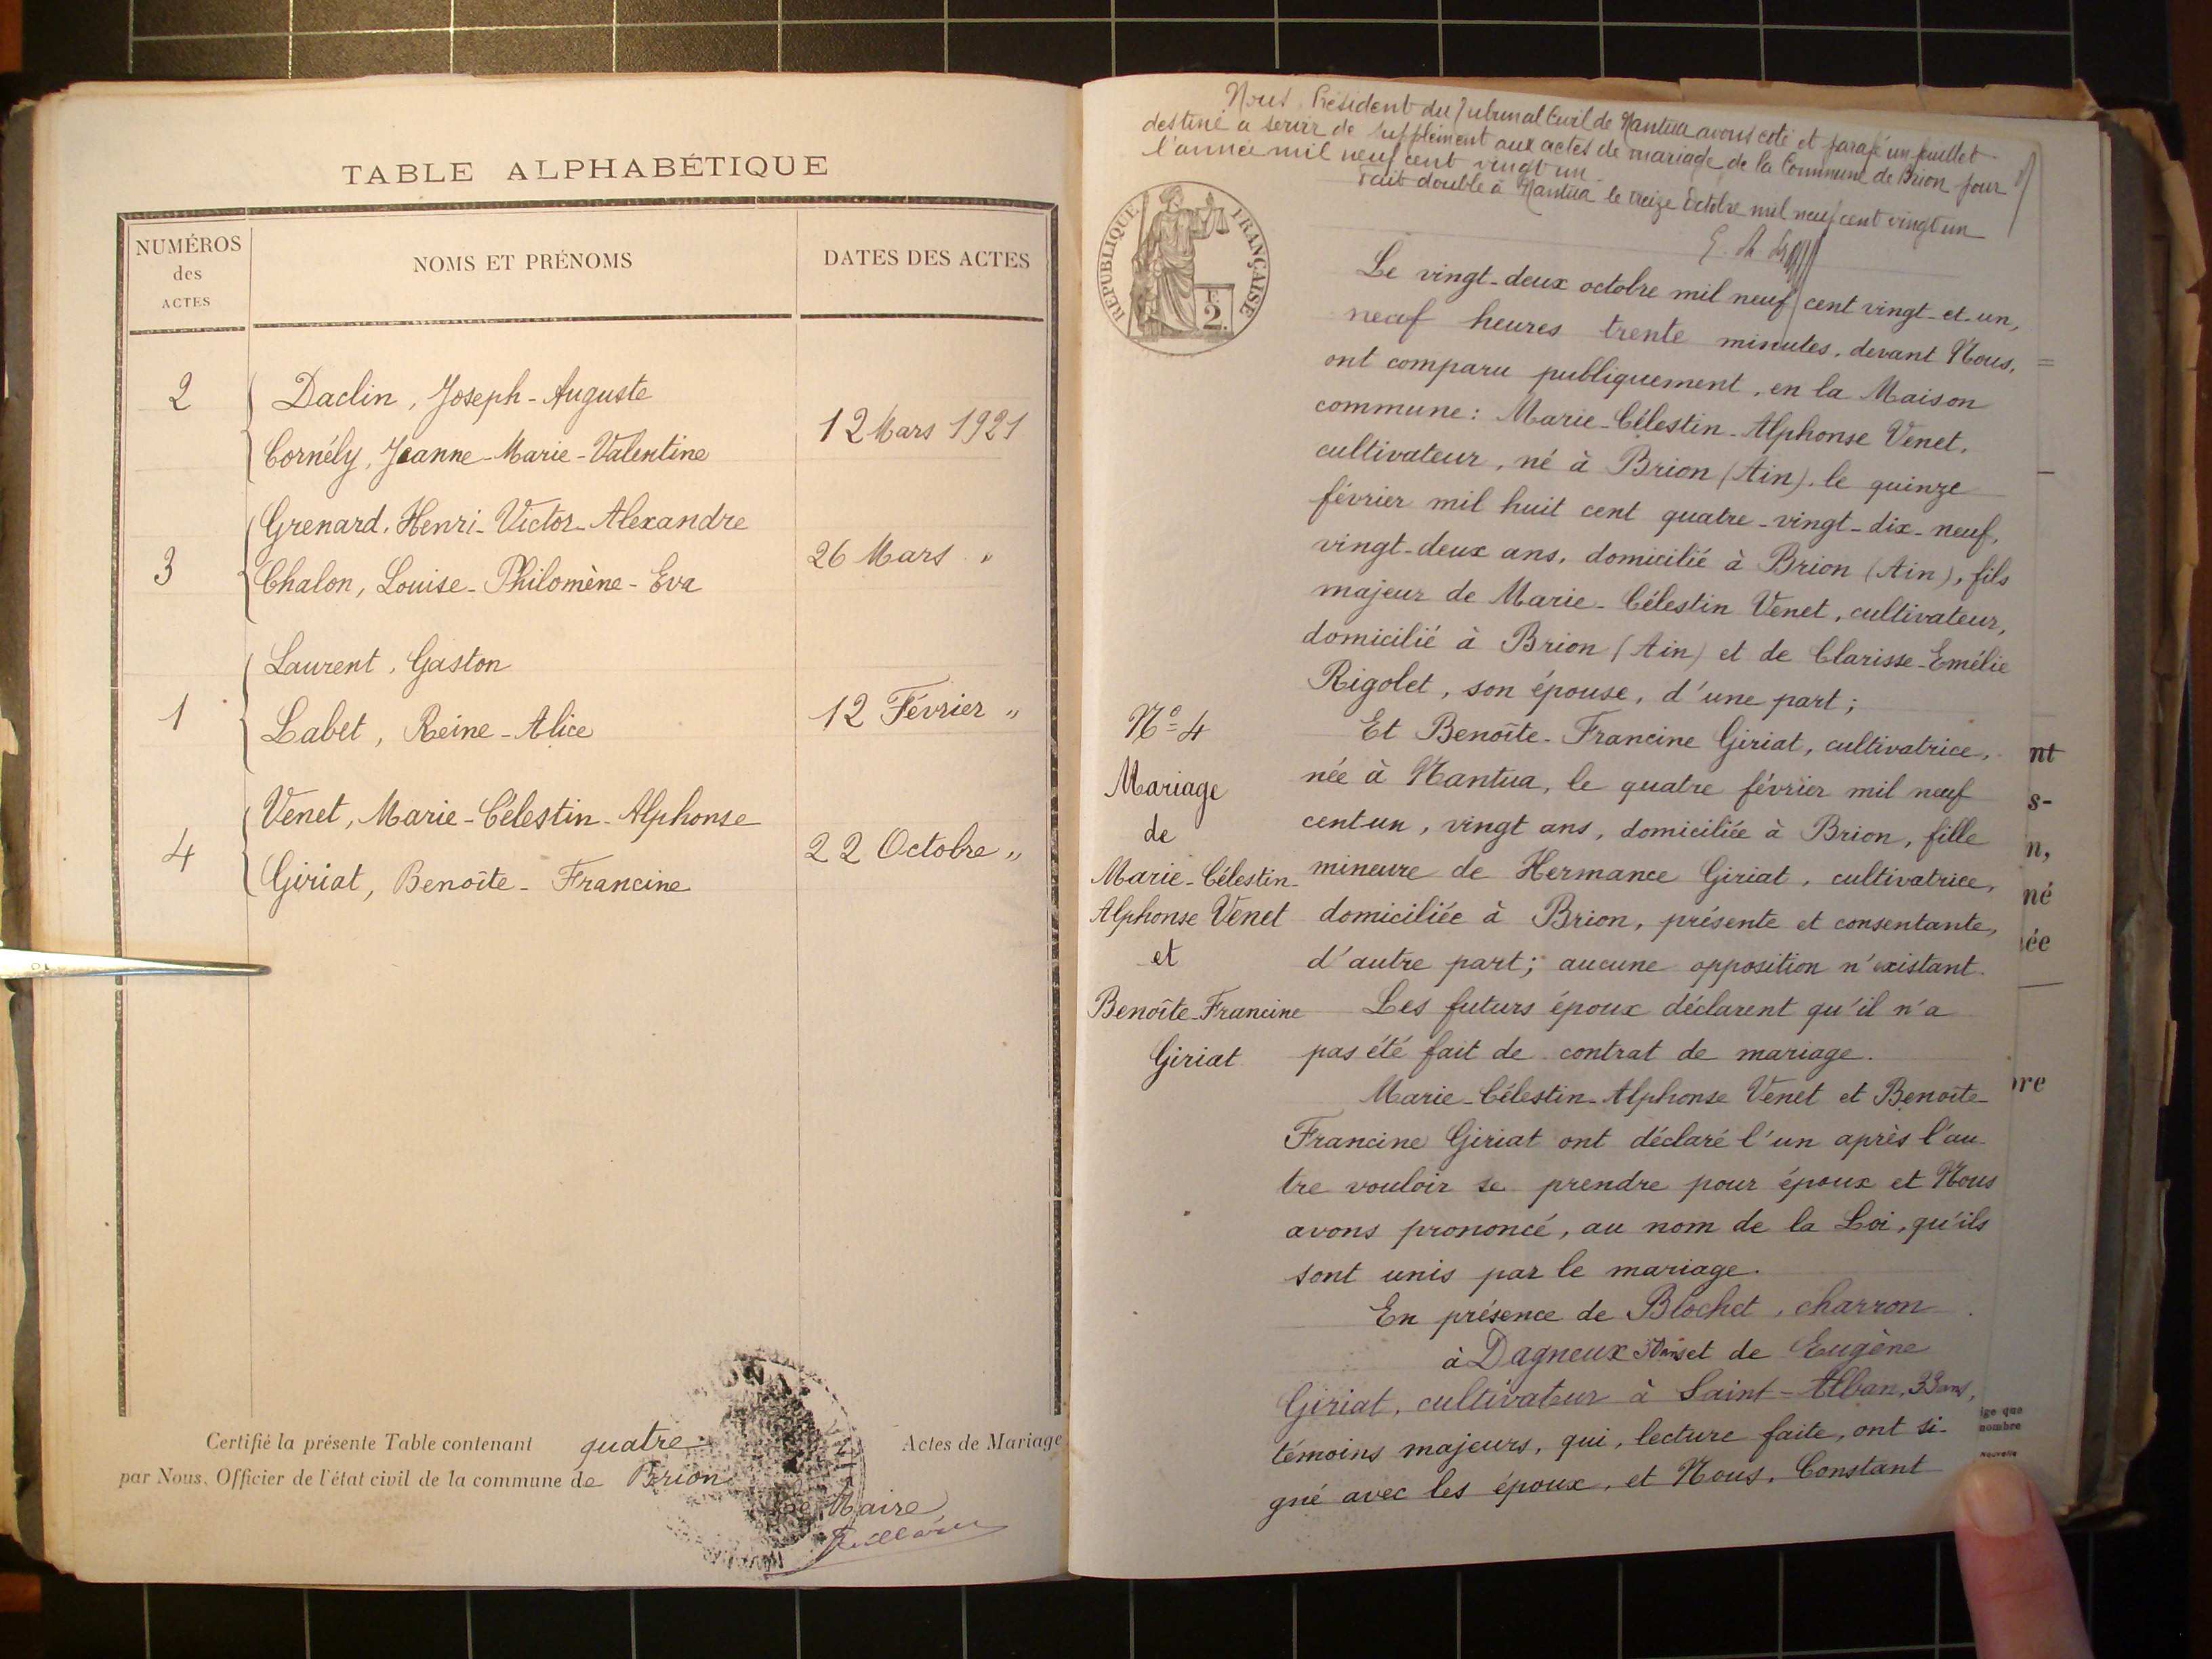 TABLE ALPHABÉTIQUE
NUMÉROS
des
ACTES
NOMS ET PRÉNOMS
DATES DES ACTES
2
Daclin, Joseph-Auguste
Cornély, Jeanne-Marie-Valentine
12 Mars 1921
3
Grenard, Henri-Victor-Alexandre
Chalon, Louise-Philomène-Eva
26 Mars "
1
Laurent, Gaston
Labet, Reine-Alice
12 Février "
4
Venet, Marie-Célestin-Alphonse
Giriat, Benoîte-Francine
22 Octobre "
Certifié la présente Table contenant quatre Actes de Mariage
par Nous, Officier de l'état civil de la commune de Brion
Le Maire,
Nous, Président du Tribunal Civil de Nantua avons coté et parafé un feuillet
destiné à servir de supplément aux actes de mariage de la Commune de Brion pour
l'année mil neuf cent vingt un
Fait double à Nantua le treize Octobre mil neuf cent vingt un
REPUBLIQUE FRANÇAISE
F.
2.
Le vingt-deux octobre mil neuf cent vingt-et-un,
neuf heures trente minutes, devant Nous,
ont comparu publiquement, en la Maison
commune: Marie-Célestin-Alphonse Venet,
cultivateur, né à Brion (Ain), le quinze
février mil huit cent quatre-vingt-dix-neuf,
vingt-deux ans, domicilié à Brion (Ain), fils
majeur de Marie-Célestin Venet, cultivateur,
domicilié à Brion (Ain) et de Clarisse-Emélie
Rigolet, son épouse, d'une part;
Et Benoîte-Francine Giriat, cultivatrice,
née à Nantua, le quatre février mil neuf
cent un, vingt ans, domiciliée à Brion, fille
mineure de Hermance Giriat, cultivatrice,
domiciliée à Brion, présente et consentante,
d'autre part; aucune opposition n'existant.
Les futurs époux déclarent qu'il n'a
pas été fait de contrat de mariage.
Marie-Célestin-Alphonse Venet et Benoîte-
Francine Giriat ont déclaré l'un après l'au-
tre vouloir se prendre pour époux et Nous
avons prononcé, au nom de la Loi, qu'ils
sont unis par le mariage.
En présence de Blochet, charron
à Dagneux et de Eugène
Giriat, cultivateur à Saint-Alban, 33 ans,
témoins majeurs, qui, lecture faite, ont si-
gné avec les époux, et Nous, Constant
Nº 4
Mariage
de
Marie-Célestin-
Alphonse Venet
et
Benoîte-Francine
Giriat
nt
s-
n,
né
ée
re
ige que
nombre
Nouvelle